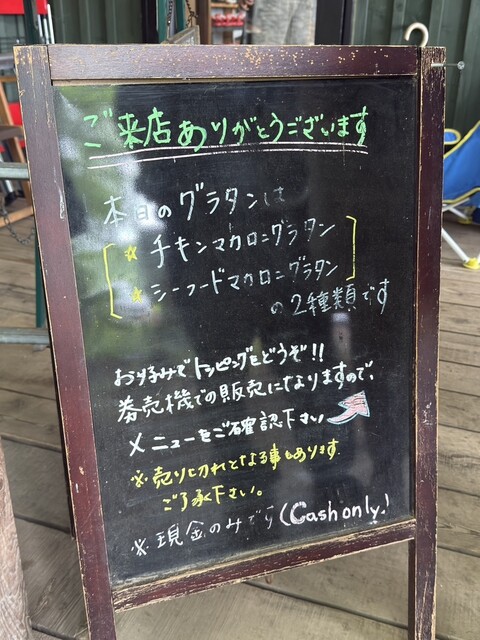 ご来店ありがとうございます
本日のグラタンは
☆ チキンマカロニグラタン
☆ シーフードマカロニグラタン
の2種類です
お好みでトッピングをどうぞ!!
券売機での販売になりますので、
メニューをご確認下さい
※売り切れとなる事もあります
ご了承下さい。
※現金のみです(Cash only.)